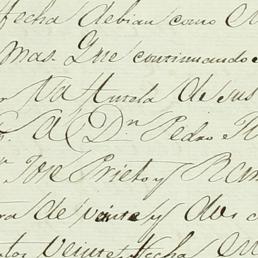 fecha debian como
mas. Que continuando
ta Amola de sus
A Dn Pedro
Jose Prieto y Ram
ra de veinte y dos
veinte, fecha